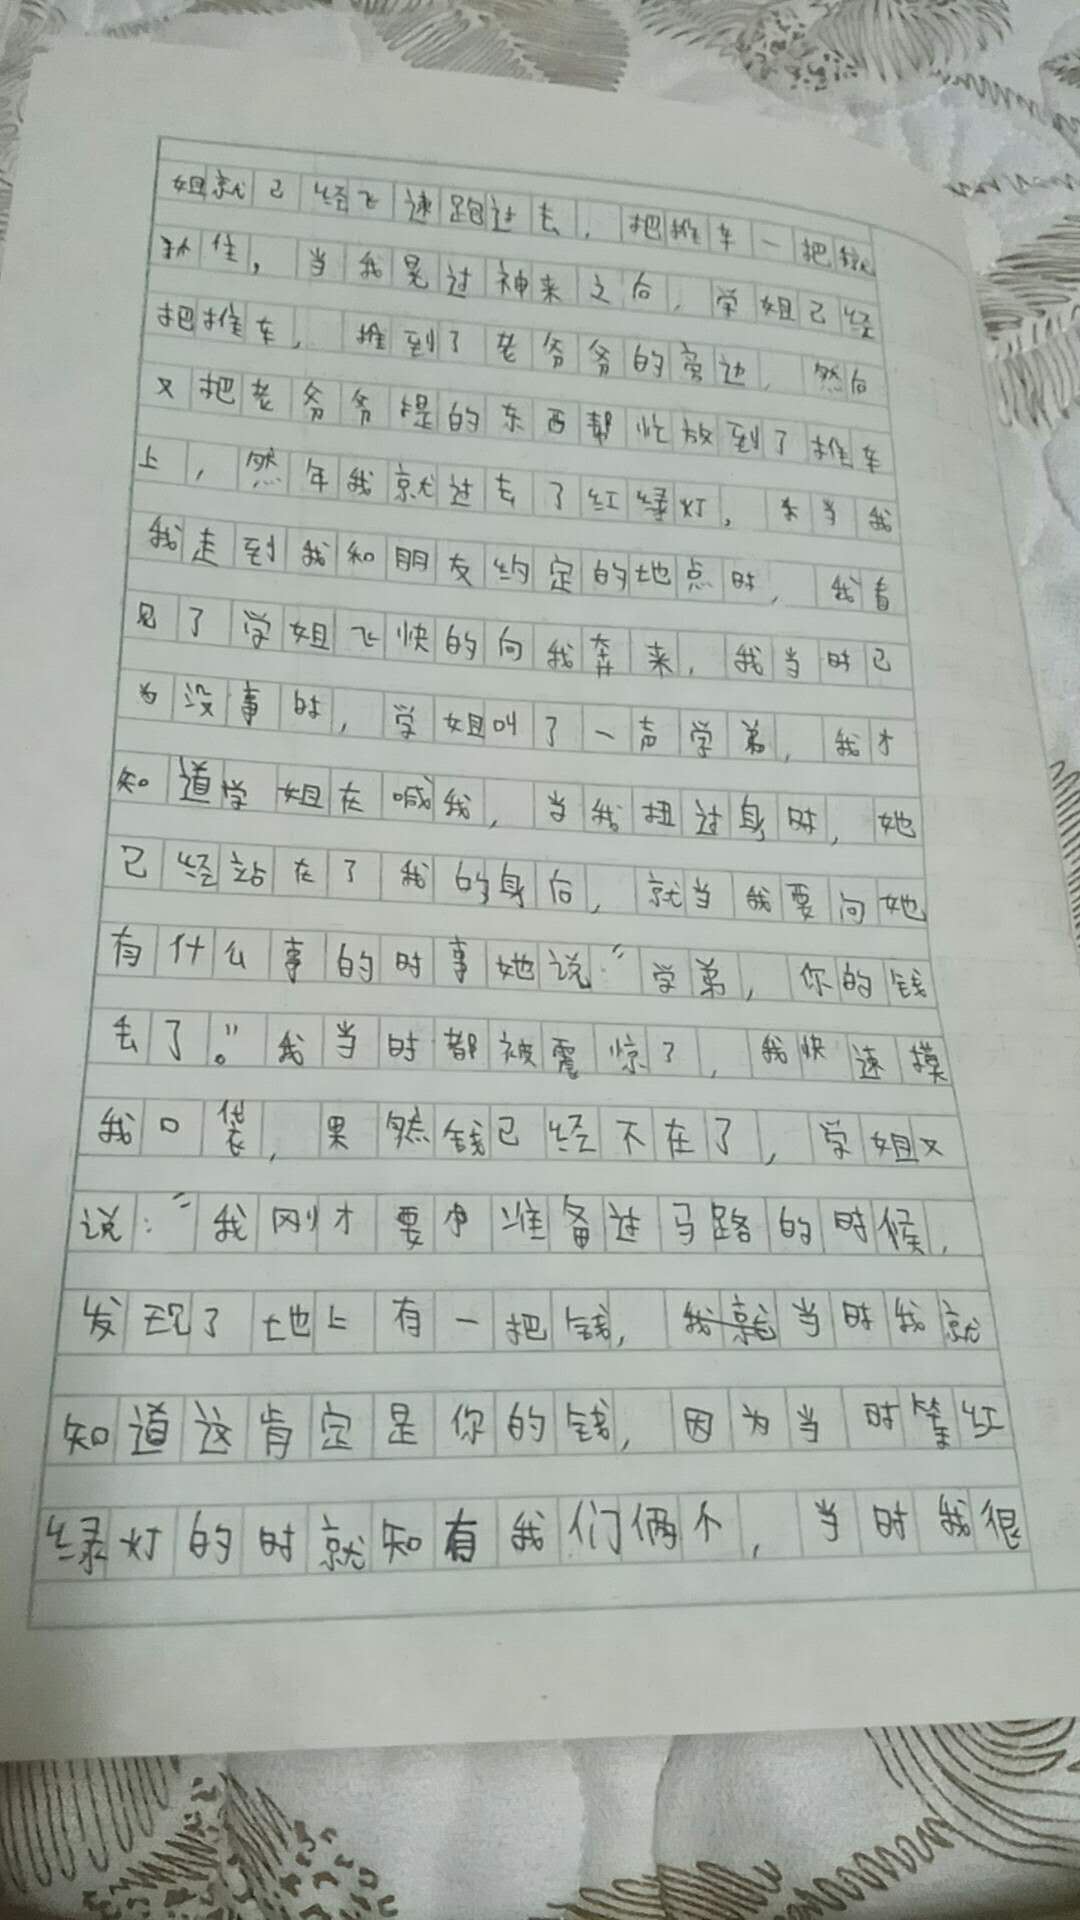 姐就已经飞速跑过去，把推车一把就
扶住，当我晃过神来之后，学姐已经
把推车，推到了老爷爷的旁边，然后
又把老爷爷提的东西帮忙放到了推车
上，然年我就过去了红绿灯，当我
我走到我和朋友约定的地点时，我看
见了学姐飞快的向我奔来，我当时已
为没事时，学姐叫了一声学弟，我才
知道学姐在喊我，当我扭过身时，她
已经站在了我的身后，就当我要问她
有什么事的时事她说：“学弟，你的钱
丢了。”我当时都被震惊了，我快速摸
我口袋，果然钱已经不在了，学姐又
说：“我刚才要准备过马路的时候，
发现了地上有一把钱，我就当时我就
知道这肯定是你的钱，因为当时等红
绿灯的时就知有我们俩个，当时我很